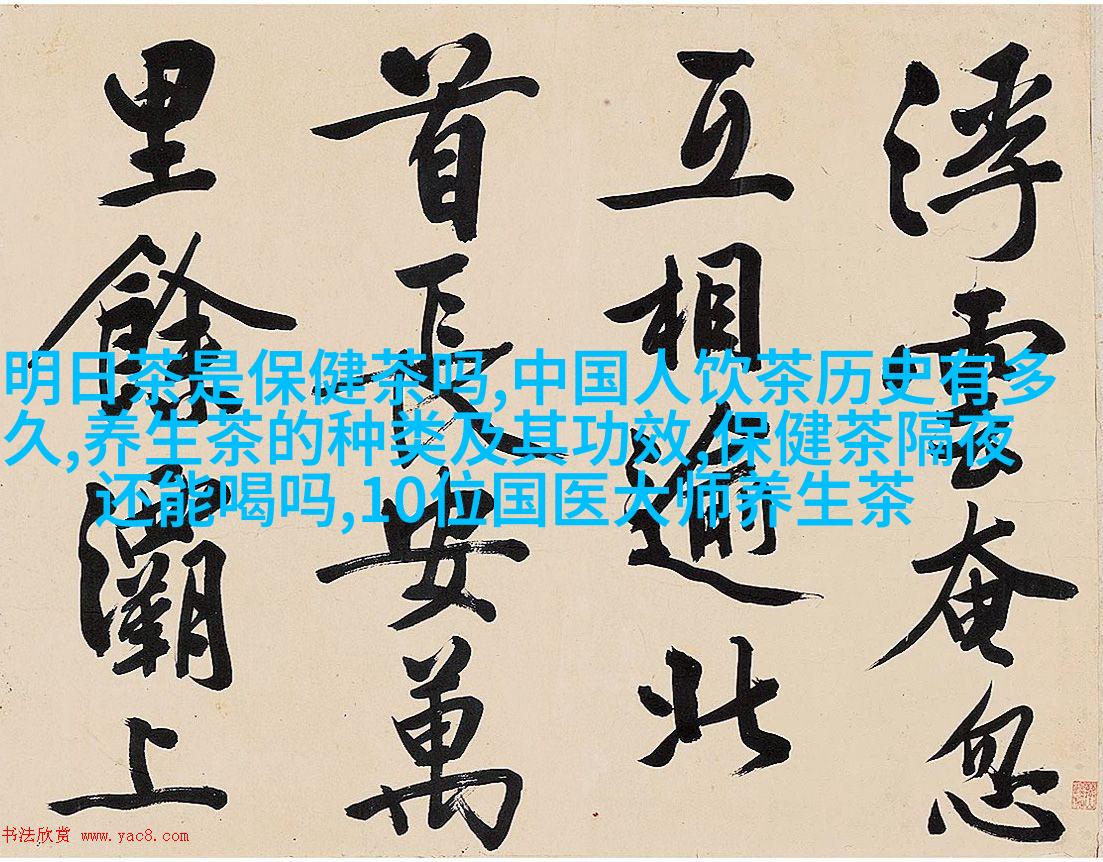 浮雲奄忽
互相逾北
首長安萬
里餘灞上
明日茶是保健茶吗,中国人饮茶历史有多
久,养生茶的种类及其功效,保健茶隔夜
还能喝吗,10位国医大师养生茶
书法欣赏 www.yac8.com